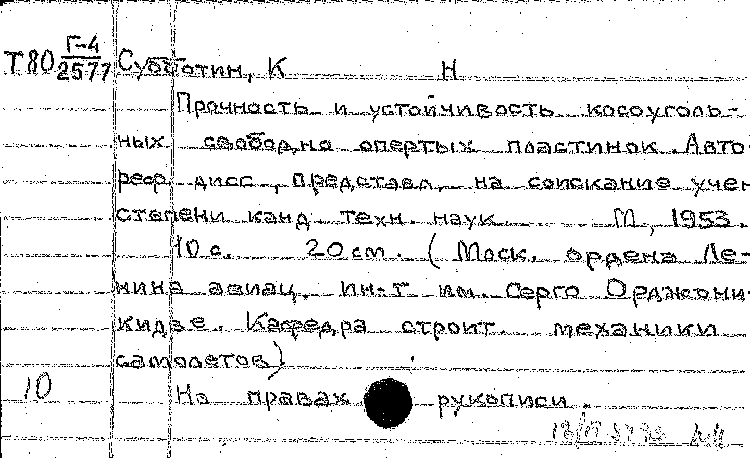 Т80 Г-4
2577 Субботин, К Н
Прочность и устойчивость косоуголь-
ных свободно опертых пластинок. Авто-
реф. дисс., представл. на соискание учен
степени канд. техн. наук М, 1953.
10 с. 20 см. (Моск. ордена Ле-
нина авиац. ин-т им. Серго Орджони-
кидзе. Кафедра строит. механики
самолетов)
10 На правах рукописи.